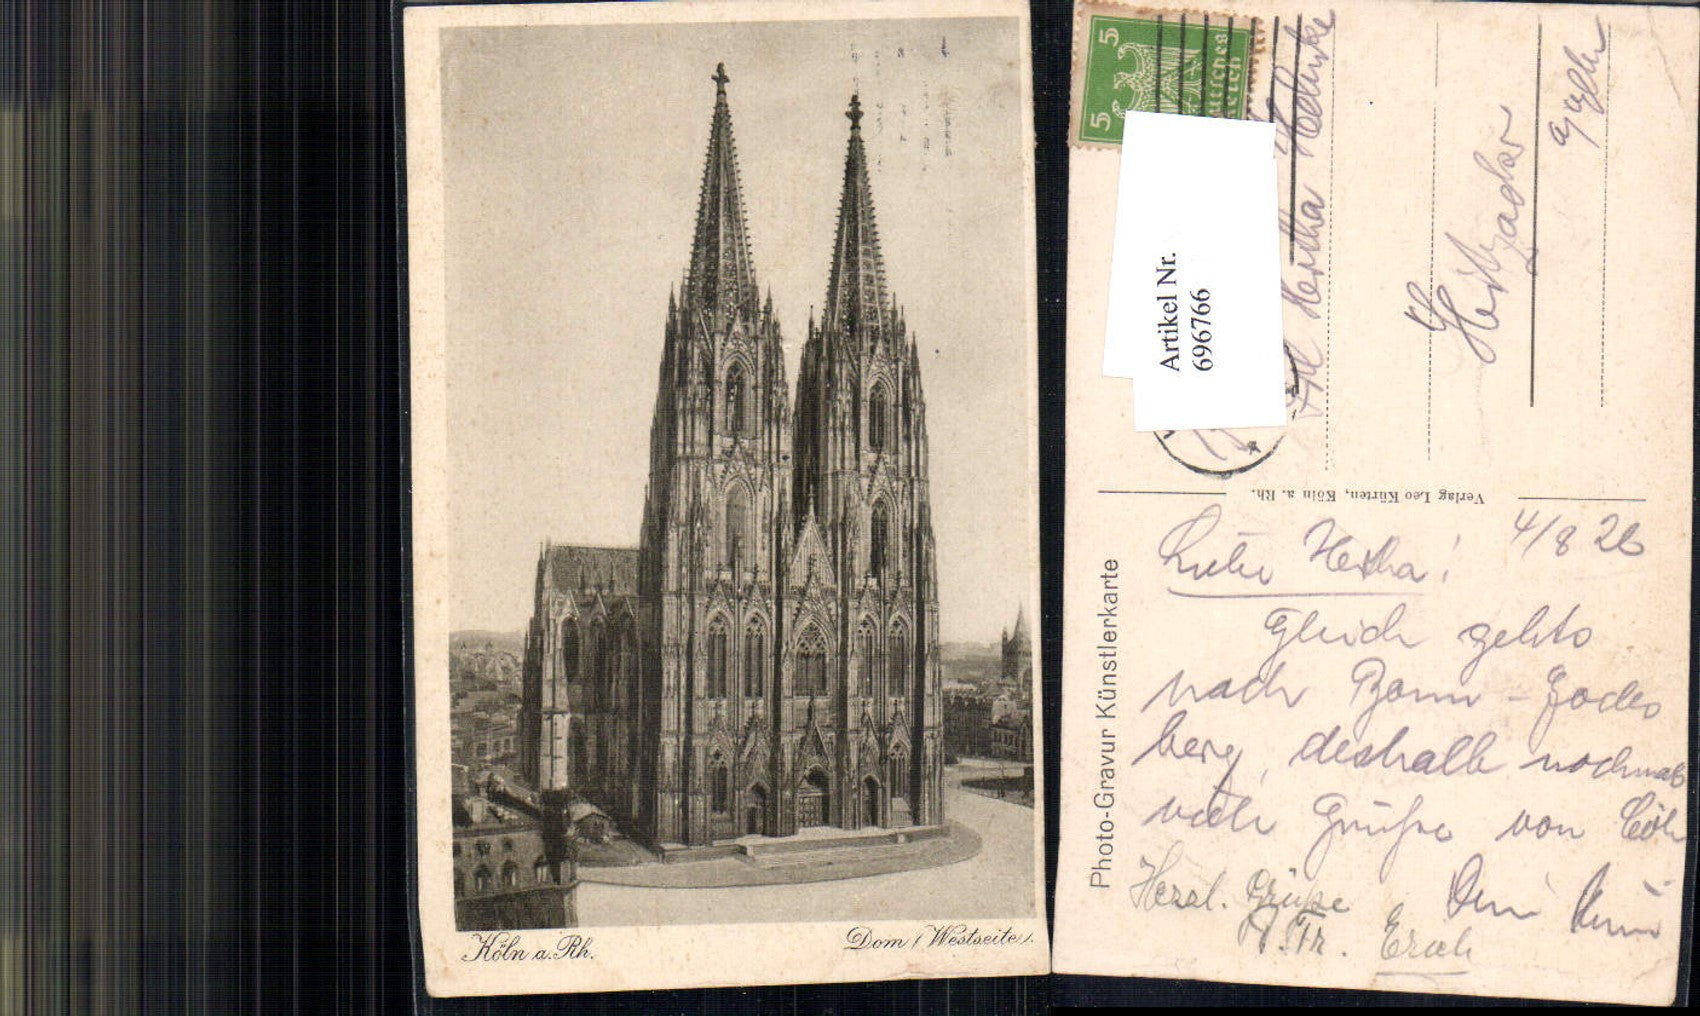 Köln a. Rh.
Dom (Westseite).
5
5
Deutsches
Reich
Artikel Nr.
696766
Hertha
Verlag Leo Kürten, Köln a. Rh.
Photo-Gravur Künstlerkarte
4/8 26
Liebe Hertha!
Gleich gehts
nach Bonn-Godes
berg, deshalb nochmals
viele Grüße von Cöln
Herzl. Grüsse
Fr. Erich